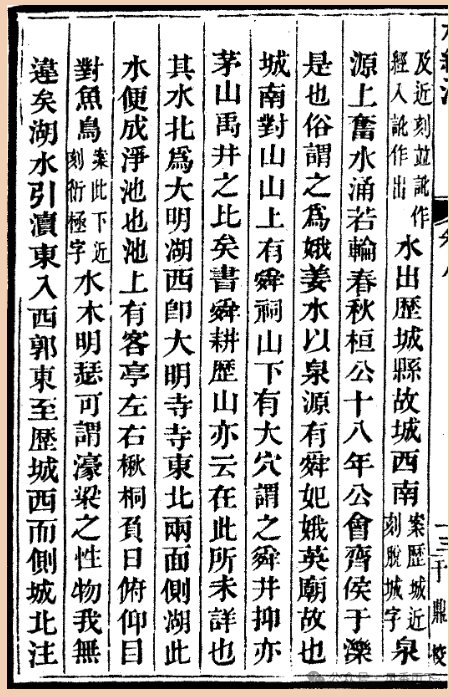 及近刻並訛作
經入訛作出
水出歴城縣故城西南
案歴城近
刻脫城字
泉
源上奮水涌若輪春秋桓公十八年公會齊侯于濼
是也俗謂之爲娥姜水以泉源有舜妃娥英廟故也
城南對山山上有舜祠山下有大穴謂之舜井抑亦
茅山禹井之比矣書舜耕歴山亦云在此所未詳也
其水北爲大明湖西卽大明寺寺東北兩面側湖此
水便成淨池也池上有客亭左右楸桐負日俯仰目
對魚鳥
案此下近
刻衍極字
水木明瑟可謂濠梁之性物我無
違矣湖水引瀆東入西郭東至歴城西而側城北注